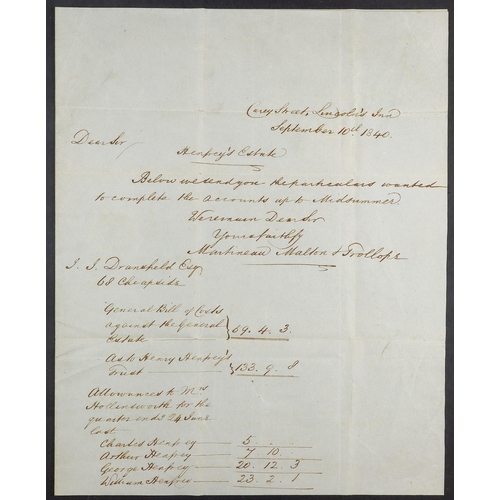 Carey Street, Lincoln's Inn
September 10th 1840.
Dear Sir
Heapey's Estate
Below we send you the particulars wanted
to complete the accounts up to Midsummer
We remain Dear Sir
Yours faithfully
Martineau Malton & Trollope
J. J. Dransfield Esq
68 Cheapside
General Bill of Costs
against the General
Estate 59. 4. 3.
As to Henry Heapey's
Trust 133. 9. 8
Allowances to Mrs
Hollensworth for the
quarter end 24 June
last.
Charles Heapey 5 . .
Arthur Heapey 7 10.
George Heapey 20. 12. 3
William Heapey 23. 2. 1